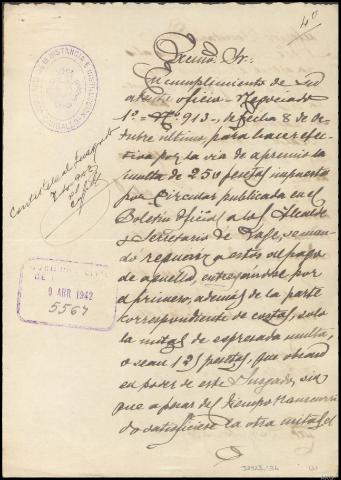 4º
Excmo. Sr.
En cumplimiento de su
atento oficio - Negociado
1º - Nº 913, de fecha 8 de Oc-
tubre último, para hacer efec-
tiva por la vía de apremio la
multa de 250 pesetas impuesta
por Circular publicada en el
Boletín Oficial a los Alcalde
y Secretario de
requerir a estos al pago
de aquella, entregándose por
el primero, además de la parte
correspondiente de costas, solo
la mitad de expresada multa,
o sean 125 pesetas, que obran
en poder de este Juzgado, sin
que a pesar del tiempo transcurri-
do satisficiese la otra mitad el
INSTANCIA E INSTRUCCION
CARBALLO
Contéstese al Juzgado
9 ABR 1942
5564